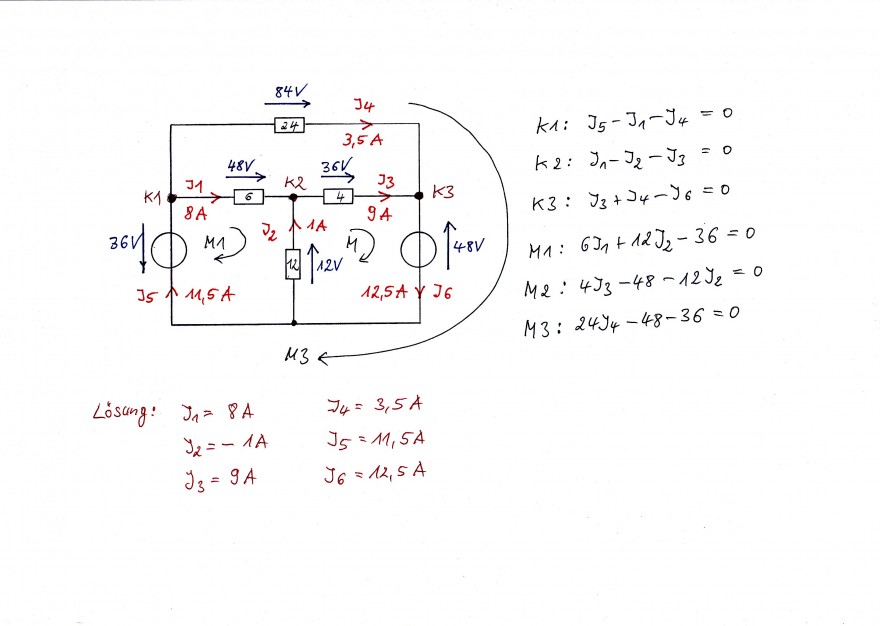 84V
J4
24
3,5A
48V
36V
K1
J1
K2
J3
K3
6
4
8A
9A
36V
M1
J2
1A
M
48V
12
12V
J5
11,5A
12,5A
J6
M3
K1: J5-J1-J4 = 0
K2: J1-J2-J3 = 0
K3: J3+J4-J6 = 0
M1: 6J1+12J2-36 = 0
M2: 4J3-48-12J2 = 0
M3: 24J4-48-36 = 0
Lösung: J1 = 8A J4 = 3,5A
J2 = -1A J5 = 11,5A
J3 = 9A J6 = 12,5A